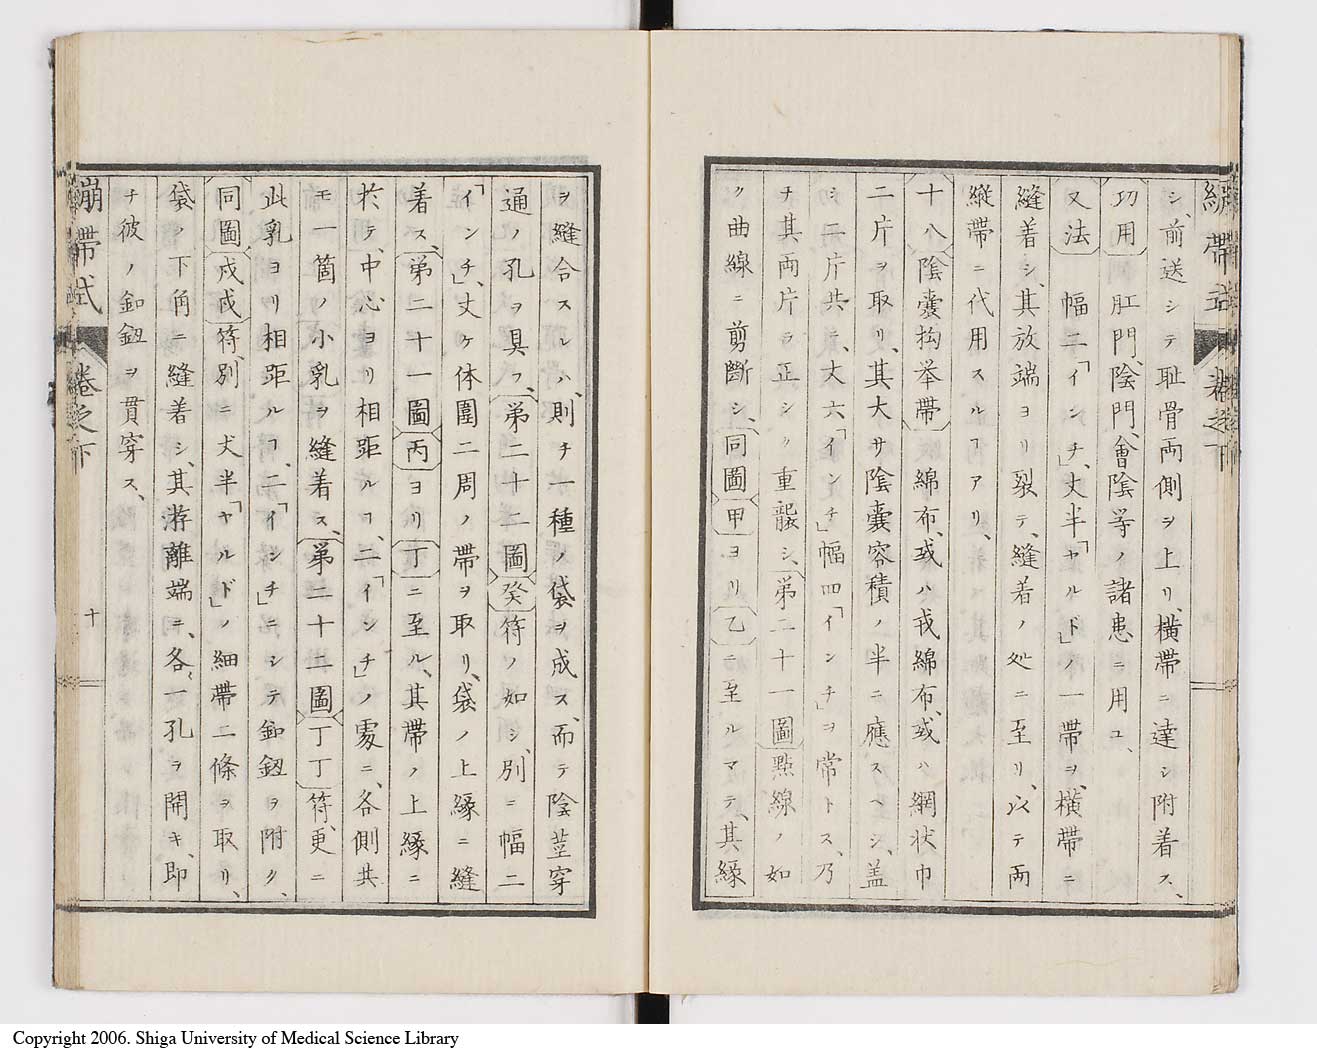 繃帶式 卷之下
シ、前送シテ耻骨両側ヲ上リ、横帶ニ達シ附着ス、
功用 肛門、陰門、會陰等ノ諸患ニ用ユ、
又法 幅二「インチ」、丈半「ヤルド」ノ一帶ヲ、横帶ニ
縫着シ、其放端ヨリ裂テ、縫着ノ処ニ至リ、以テ両
縦帶ニ代用スルヿアリ、
十八陰嚢抅挙帶 綿布、或ハ戎綿布、或ハ網状巾
二片ヲ取リ、其大サ陰嚢容積ノ半ニ應スヘシ、盖
シ二片共、丈六「インチ」幅四「インチ」ヲ常トス、乃
チ其両片ヲ正シク重襲シ、第二十一圖點線ノ如
ク曲線ニ剪斷シ、同圖甲ヨリ乙ニ至ルマテ、其縁
ヲ縫合スルハ、則チ一種ノ袋ヲ成ス、而テ陰莖穿
通ノ孔ヲ具フ、第二十二圖癸符ノ如シ、別ニ幅二
「インチ」、丈ケ体圍二周ノ帶ヲ取リ、袋ノ上縁ニ縫
着ス、第二十一圖丙ヨリ丁ニ至ル、其帶ノ上縁ニ
於テ、中心ヨリ相距ルヿ、二「インチ」ノ処ニ、各側共
モ一箇ノ小乳ヲ縫着ス、第二十二圖丁丁符、更ニ
此乳ヨリ相距ルヿ、二「インチ」ニシテ釦鈕ヲ附ク、
同圖戍戍符、別ニ丈半「ヤルド」ノ細帶二條ヲ取リ、
袋ノ下角ニ縫着シ、其游離端ニ、各一孔ヲ開キ、即
チ彼ノ釦鈕ヲ貫穿ス、
繃帶式 卷之下 十
Copyright 2006. Shiga University of Medical Science Library